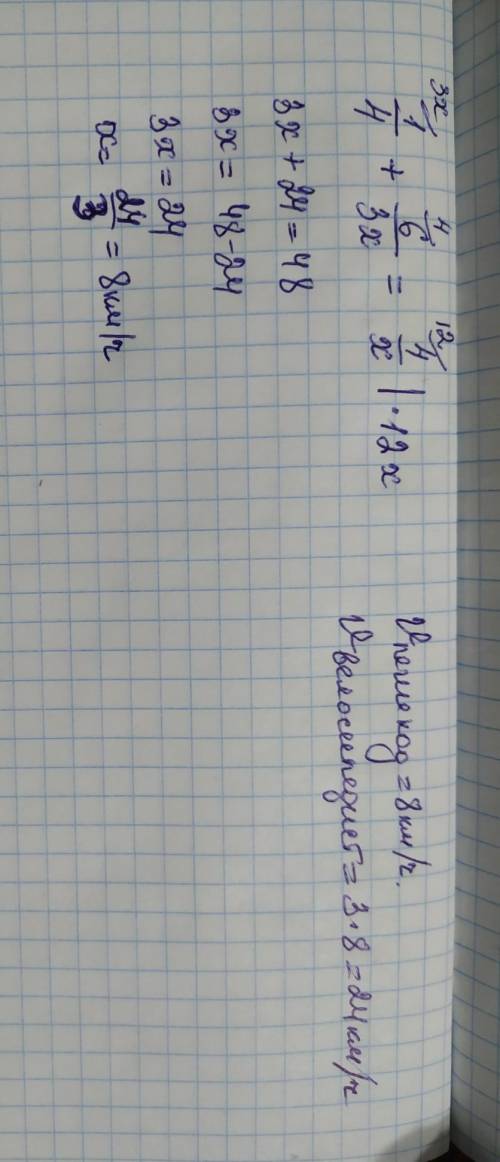 3x/ 1/4 + 4/ 6/3x = 12/ 4/x | · 12x
3x + 24 = 48
3x = 48 - 24
3x = 24
x = 24/3 = 8 км/ч
Vпешеход = 8 км/ч.
Vвелосипедист = 3 · 8 = 24 км/ч